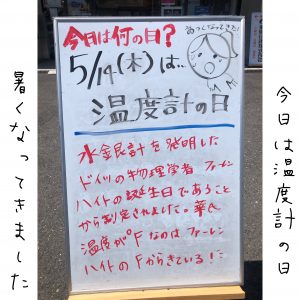 今日は温度計の日
今日は何の日?
あつくなってきた!
5/14(木)は…
温度計の日
水金艮計を発明した
ドイツの物理学者 ファーレン
ハイトの誕生日であること
から制定されました。華氏
温度が°Fなのはファーレン
ハイトのFからきている!!
暑くなってきました